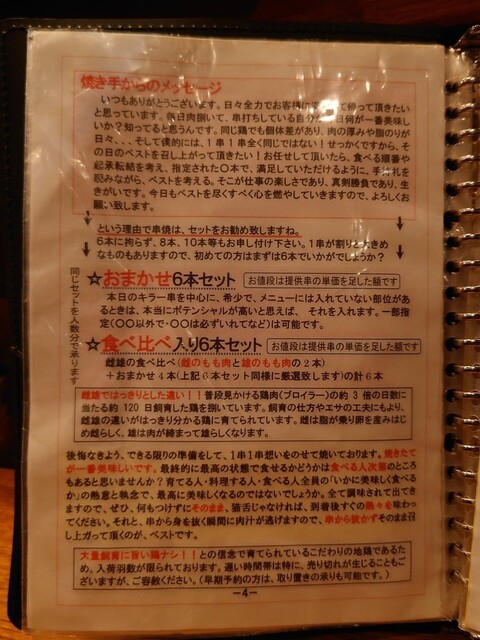 焼き手からのメッセージ
いつもありがとうございます。日々全力でお客様に
って頂きたい
と思っています。毎日肉捌いて、串打ちしている自分が
日何が一番美味し
いか？知ってると思うんです。同じ鶏でも個体差があり、肉の厚みや脂のりが
日々、、、そして僕的には、１串１串全く同じではない！せっかくですから、そ
の日のベストを召し上がって頂きたい！お任せして頂いたら、食べる順番や
起承転結を考え、指定された〇本で、満足していただけるように、手
札を
睨みながら、ベストを考える。そこが仕事の楽しさであり、真剣勝負であり、生
きがいです。今日もベストを尽くすべく心を燃やしていきますので、よろしくお
願い致します。
という理由で串焼は、セットをお勧め致しますね。
６本に拘らず、８本、１０本等もお申し付け下さい。１串が割りと大きめ
なものもありますので、初めての方はまずは６本でいかがでしょうか？
同じセットを人数分で承ります
☆おまかせ６本セット お値段は提供串の単価を足した額です
本日のキラー串を中心に、希少で、メニューには入れていない部位が
あるときは、本当にポテンシャルが高いと思えば、それを入れます。一部指
定（〇〇以外で・〇〇は必ずいれてなど）は可能です。
☆食べ比べ入り６本セット お値段は提供串の単価を足した額です
雌雄の食べ比べ（雌のもも肉と雄のもも肉の２本）
＋おまかせ４本（上記６本セット同様に厳選致します）の計６本
雌雄ではっきりとした違い！！普段見かける鶏肉（ブロイラー）の約３倍の日数に
当たる約120日飼育した鶏を捌いています。飼育の仕方やエサの工夫にもより、
雌雄の違いはっきり分かる鶏に育てられています。雌は脂が乗り卵を産みはじ
め雌らしく、雄は肉が締まって雄らしくなります。
後悔なきよう、できる限りの準備をして、１串１串想いをのせて焼いております。焼きたて
が一番美味しいです。最終的に最高の状態で食せるかどうかは食べる人次第のところ
もあると思いませんか？育てる人・料理する人・食べる人全員の「いかに美味しく食べる
か」の熱意と執念で、最高に美味しくなるのではないでしょうか。全て調味されて出てき
ますので、ぜひ、何もつけずにそのまま、猫舌じゃなければ、到着後すぐの熱々を味わっ
てください。それと、串から身を抜く瞬間に肉汁が逃げますので、串から抜かずそのまま召
し上がって頂くのが、ベストです。
大量飼育に旨い鶏ナシ！！との信念で育てられているこだわりの地鶏であるた
め、入荷羽数が限られております。遅い時間帯は特に、売り切れが生じることもござ
いますが、ご容赦ください。（早期予約の方は、取り置きの承りも可能です。）
－４－